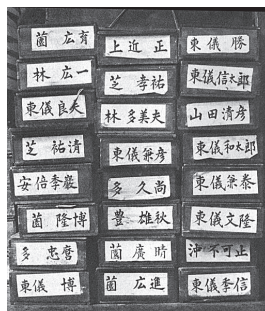 薗 広育
上近 正
東儀 勝
林 広一
芝 孝祐
東儀信太郎
東儀良夫
林 多美夫
山田清彦
芝 祐清
東儀兼彦
東儀和太郎
安倍季巌
多 久尚
東儀兼泰
薗 隆博
豊 雄秋
東儀文隆
多 忠麿
薗 廣晴
沖 不可止
東儀 博
薗 広進
東儀季信